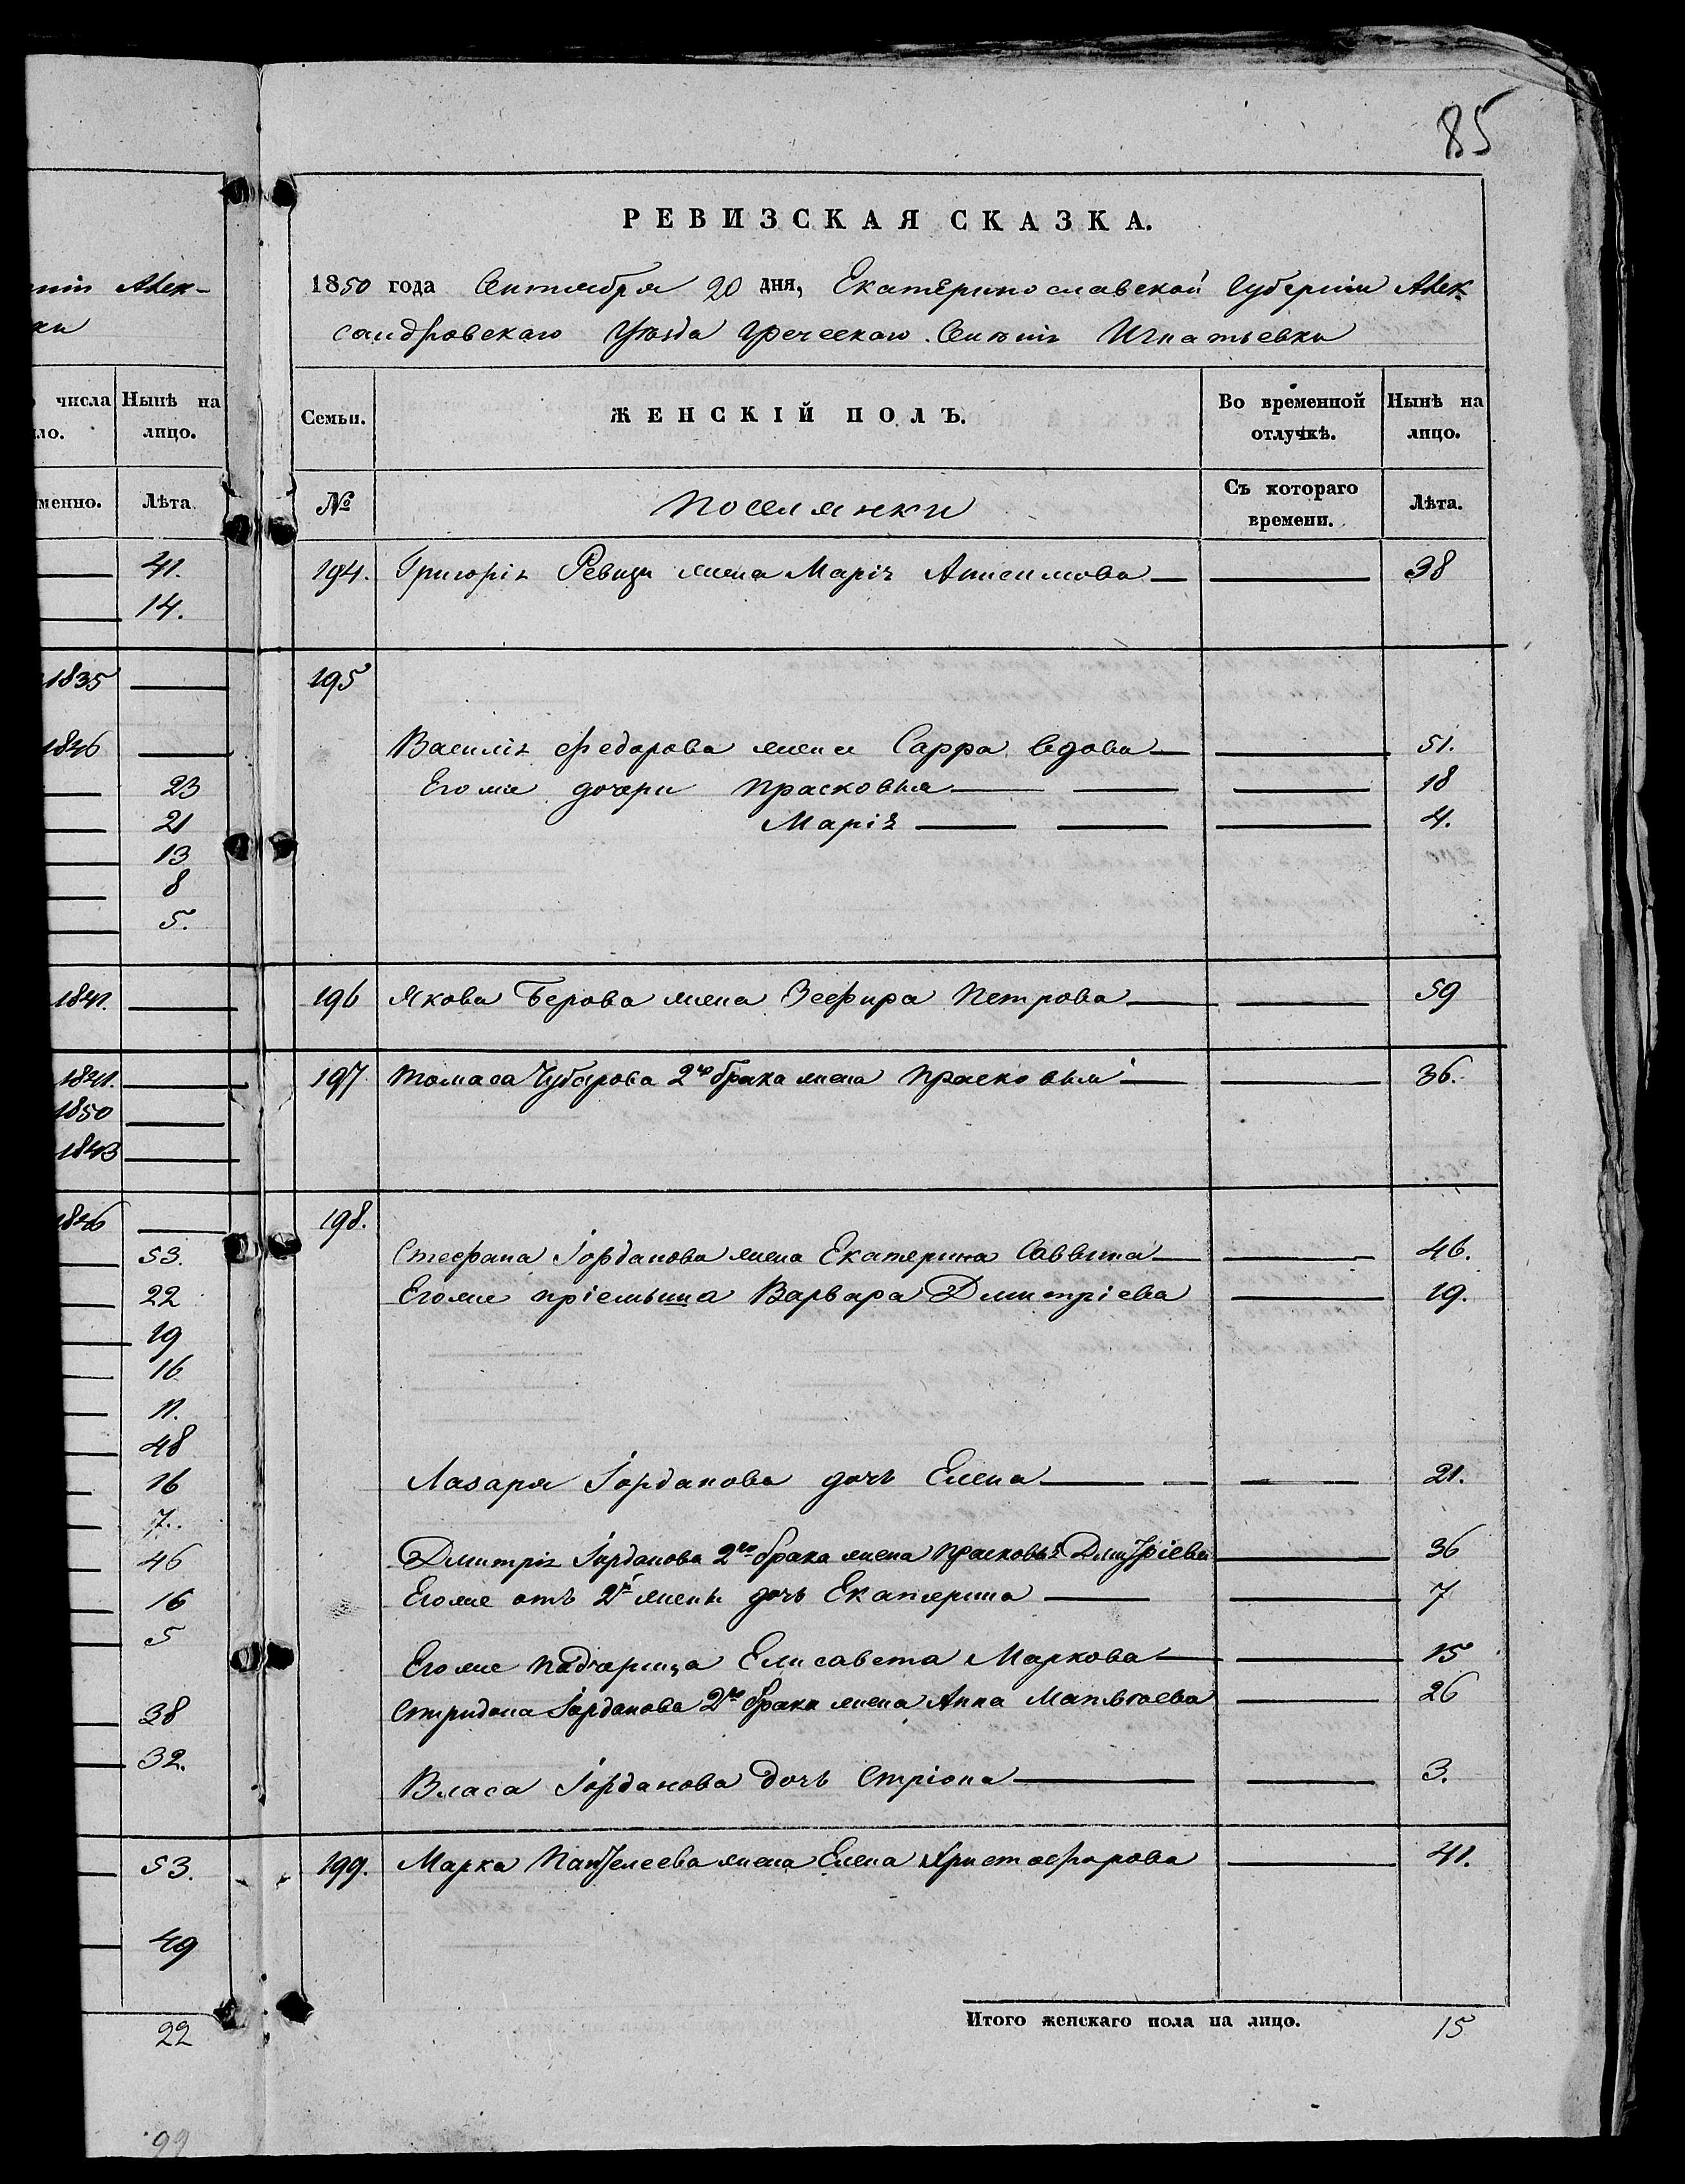 85
РЕВИЗСКАЯ СКАЗКА.
1850 года Сентября 20 дня, Екатеринославской Губерніи Алек-
сандровскаго Уѣзда Греческаго Селенія Игнатьевки
Семьи. ЖЕНСКІЙ ПОЛЪ. Во временной отлучкѣ. Нынѣ на лицо.
№ Поселянки Съ котораго времени. Лѣта.
194. Григорія Ревизи жена Марія Анисимова 38
195
Василія Федорова жена Сарра вдова 51.
Егоже дочери Прасковья 18
Марія 4.
196 Якова Берова жена Зефира Петрова 59
197 Томаса Чубарова 2го брака жена Прасковья 36.
198.
Стефана Іорданова жена Екатерина Саввина 46.
Егоже пріемыша Варвара Дмитріева 19.
Лазаря Іорданова дочь Елена 21.
Дмитрія Іорданова 2го брака жена Прасковья Дмитріева 36
Егоже отъ 2й жены дочь Екатерина 7
Егоже падчерица Елисавета Маркова 15
Спиридона Іорданова 2го брака жена Анна Матвѣева 26
Власа Іорданова дочь Стріона 3.
199. Марка Пантелеева жена Елена Христофорова 41.
Итого женскаго пола на лицо. 15
Алек-
числа Нынѣ на
ло. лицо.
менно. Лѣта.
41.
14.
1835
1846
23
21
13
8
5.
1841.
1841.
1850
1843
1846
53.
22
19
16
11.
48
16
7.
46
16
5
38
32.
53.
49
22
99